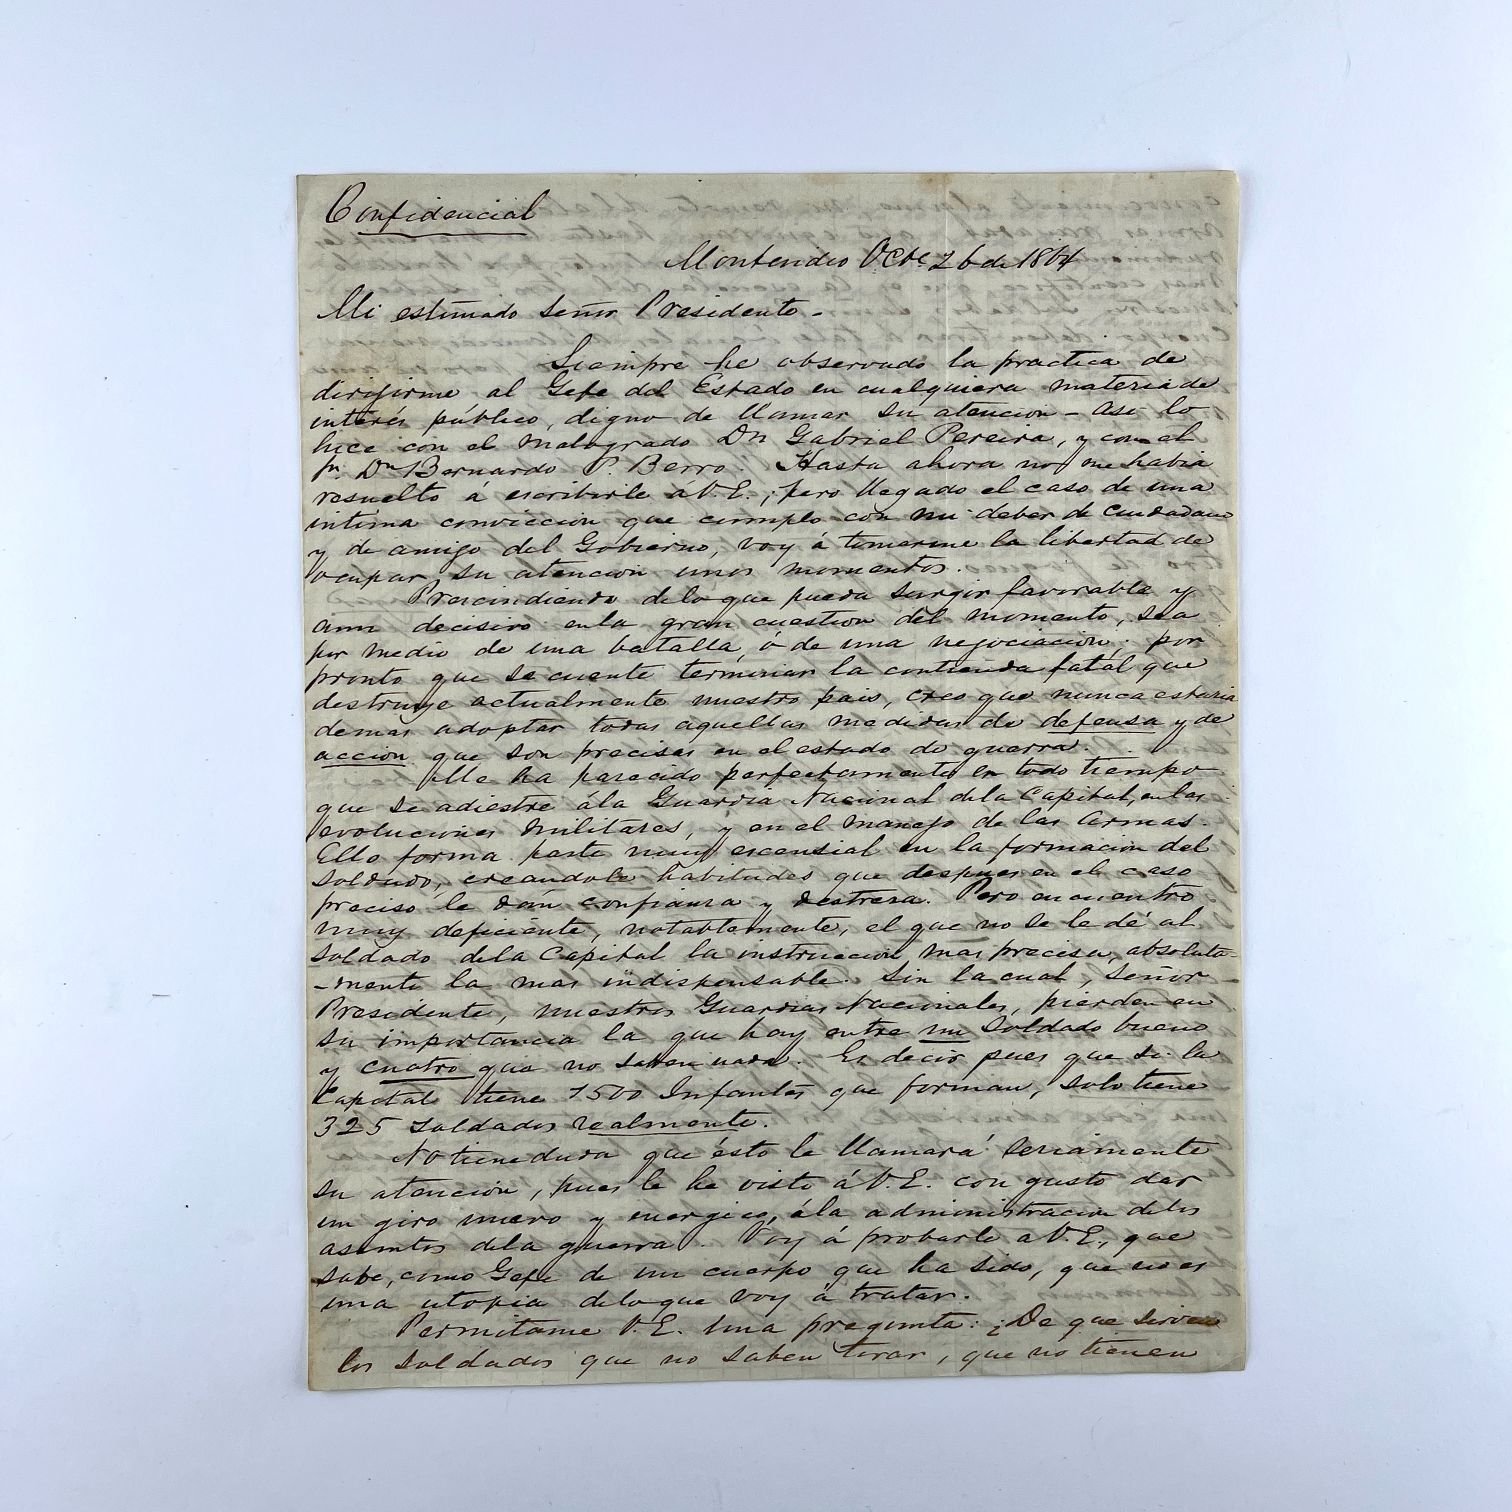 Confidencial
Montevideo Octe 26 de 1864
Mi estimado señor Presidente -
Siempre he observado la practica de
dirijirme al Gefe del Estado en cualquiera materia de
interés público, digno de llamar su atencion - Asi lo
hice con el malogrado Dn Gabriel Pereira, y con el
Sr Dn Bernardo P. Berro. Hasta ahora no me habia
resuelto á escribirle á V.E.; pero llegado el caso de una
intima conviccion que cumplo con mi deber de Ciudadano
y de amigo del Gobierno, voy á tomarme la libertad de
ocupar su atencion unos momentos.
Prescindiendo de lo que pueda surgir favorable y
aun decisivo en la gran cuestion del momento, sea
por medio de una batalla, ó de una negociacion; por
pronto que se cuente terminar la contienda fatal que
destruye actualmente nuestro pais, creo que nunca estaria
demas adoptar todas aquellas medidas de defensa y de
accion que son precisas en el estado de guerra.
Me ha parecido perfectamente en todo tiempo
que se adiestre á la Guardia Nacional de la Capital, en las
evoluciones militares, y en el manejo de las Armas.
Ello forma parte muy escensial en la formacion del
soldado, creandole habitudes que despues en el caso
preciso le dán confianza y destreza. Pero encuentro
muy deficiente, notablemente, el que no se le dé al
soldado de la Capital la instruccion mas precisa, absoluta-
-mente la mas indispensable. Sin la cual, Señor
Presidente, nuestros Guardias Nacionales, pierden en
su importancia la que hay entre un soldado bueno
y cuatro que no saben nada. Es decir pues que si la
Capital tiene 1500 Infantes que forman, solo tiene
325 soldados realmente.
No tiene duda que ésto le llamará seriamente
su atencion, pues le he visto á V.E. con gusto dar
un giro nuevo y energico, á la administracion de los
asuntos de la guerra. Voy á probarle a V.E., que
sabe, como Gefe de un cuerpo que ha sido, que no es
una utopia de lo que voy á tratar.
Permitame V.E. una pregunta: ¿De que sirven
los soldados que no saben tirar, que no tienen